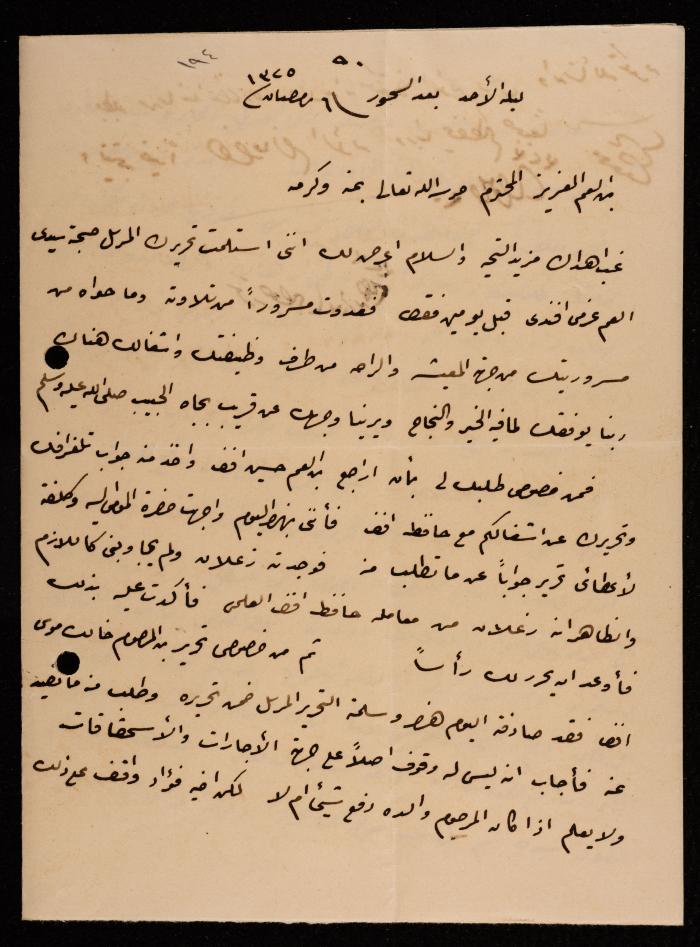 ١٩٤
٥٠
ليلة الأحد بعد السحور ٦ رمضان ١٣٢٥
ابن العم العزيز المحترم حرسه الله تعالى بمنه وكرمه
غب اهداك مزيد التحية والسلام اعرض لك انني استلمت تحريرك المرسل صحبة سيدي
العم عزمي افندي قبل يومين فقط فغدوت مسروراً من تلاوته وما حواه من
مسروريتك من جهة المعيشه والراحه من طرف وظيفتك واشغالك هناك
ربنا يوفقك لما فيه الخير والنجاح ويرينا وجهك عن قريب بجاه الحبيب صلى الله عليه وسلم
فمن خصوص طلبك لي بأن اراجع ابن العم حسين افند واخذ منه جواب تلغرافك
وتحريرك عن اشغالكم مع حافظ افند فأنني نهار اليوم واجهت حضرة المومى اليه وكلفته
لأعطائي تحرير جواباً عن ما تطلب منه فوجدته زعلان ولم يجاوبني كاللازم
والظاهر انه زعلان من معاملة حافظ افند العلمي فأكدت عليه بذلك
فأوعد انه يحرر لك رأساً ثم من خصوص تحرير بن المرحوم خالك موسى
افند فقد صادفته اليوم ظهر وسلمته التحرير المرسل ضمن تحريره وطلبت منه ما تصيد
عنه فأجاب انه ليس له وقوف اصلاً على جهة الأجارات والأستحقاقات
ولا يعلم اذا كان المرحوم والده دفع شيئ ام لا لكن اخيه فؤاد واقف على ذلك